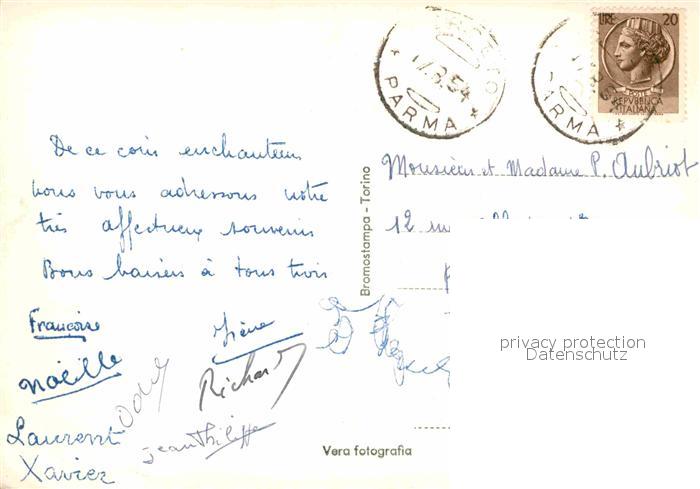 De ce coin enchanteur
nous vous adressons notre
très affectueux souvenir
Bons baisers à tous trois
Françoise
Irène
Noëlle
Odile
Richard
Laurent
Jean Philippe
Xavier
Bromostampa - Torino
Vera fotografia
17.8.54
PARMA
PARMA
LIRE 20
POSTE
REPVBBLICA
ITALIANA
Monsieur et Madame P. Aubriot
12
privacy protection
Datenschutz